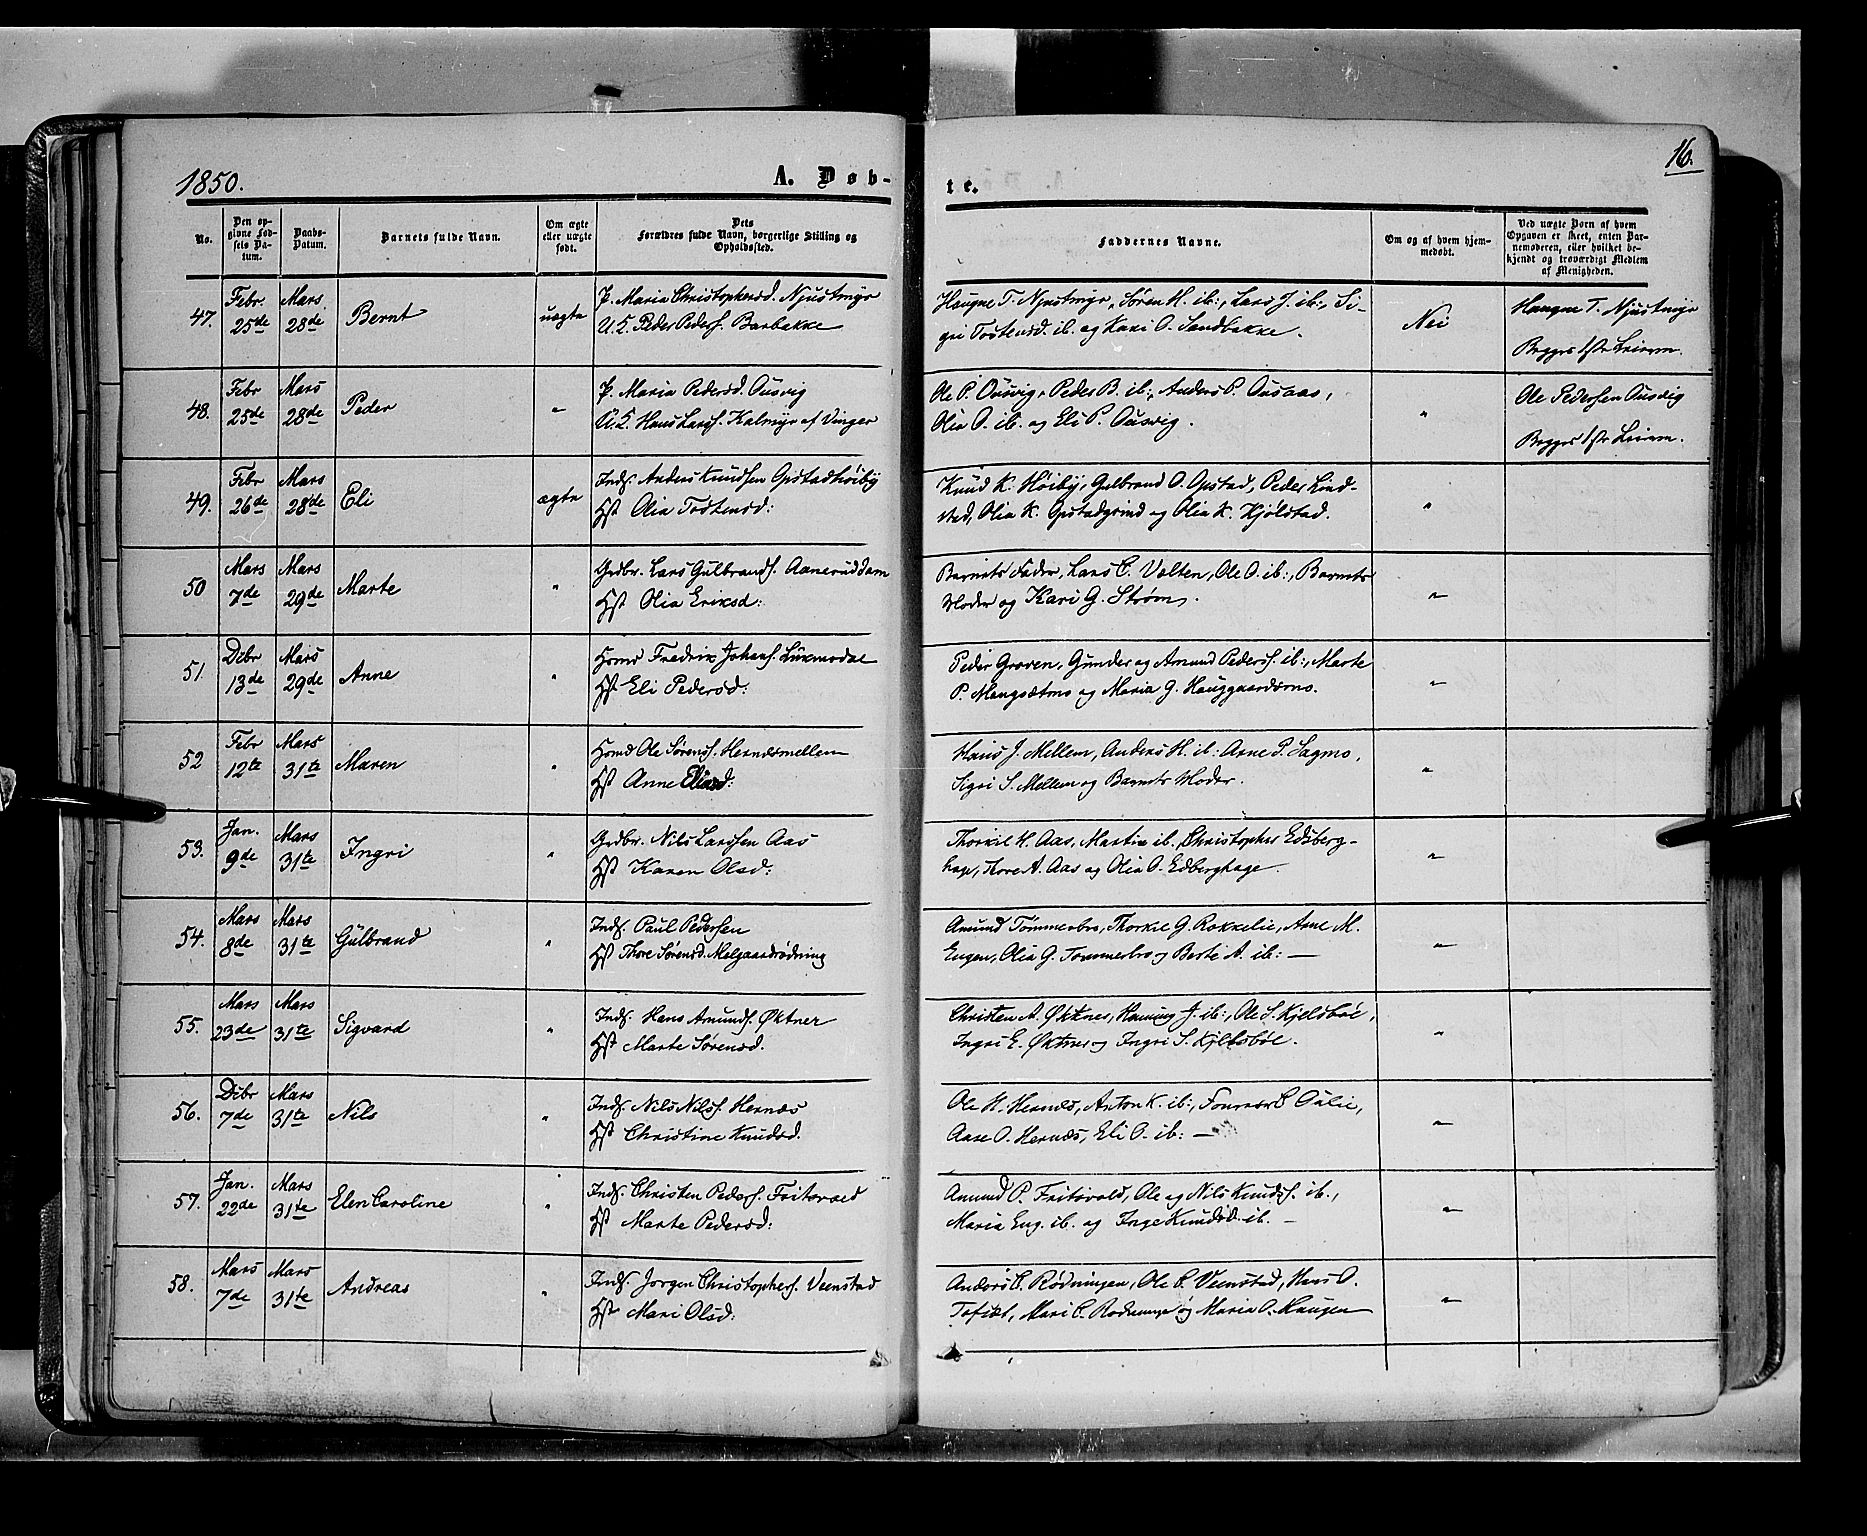 1850.
A. Døb-
te.
16.
No.
Den opgivne Fødsels Datum.
Daabs-Datum.
Barnets fulde Navn.
Om ægte eller uægte født.
Dets Forældres fulde Navn, borgerlige Stilling og Opholdssted.
Faddernes Navne.
Om og af hvem hjemmedøbt.
Ved uægte Børn af hvem Opgaven er skeet, enten Barnemoderen, eller hvilket bekjendt og troværdigt Medlem af Menigheden.
47. Febr. 25de Mars 28de Bernt uægte
P. Maria Christophersd. Njustmyr
U.K. Peder Peders. Barbakke
Haagne T. Njustmyr, Søren H. ib:, Lars J. ib:, Si-
gri Tostensd. ib. og Kari O. Sandbakke.
Nei
Haagne T. Njustmyr
Begges 1ste Leierm.
48. Febr 25de Mars 28de Peder "
P. Maria Pedersd. Ousvig
U.K. Hans Larss. Kalmyr af Vinger
Ole P. Ousvig, Peder B. ib:, Anders P. Ousaas,
Olia O. ib. og Eli P. Ousvig.
"
Ole Pedersen Ousvig
Begges 1ste Leierm.
49. Febr 26de Mars 28de Eli ægte
Inds. Anders Knudsen Opstadhøiby
Hst Olia Tostensd:
Knud K. Høiby, Gulbrand O. Opstad, Peder Lind-
stad, Olia K. Opstadgrind og Olia K. Kjølstad.
"
50 Mars 7de Mars 29de Marte "
Grdbr. Lars Gulbrands. Aaneruddam
Hst Olia Eriksd:
Barnets Fader, Lars C. Valten, Ole O. ib:, Barnets
Moder og Kari G. Strøm.
"
51. Dcbr 13de Mars 29de Anne "
Hsmd Fredrik Johans. Luxmodal
Hst Eli Pedersd:
Peder Graven, Gunder og Amund Peders. ib:, Marte
P. Mangsætmo og Maria G. Hauggaardsmo.
"
52 Febr 12te Mars 31te Maren "
Hsmd Ole Sørens. Hernæsmellem
Hst Anne Eliasd:
Hans J. Mellem, Anders H. ib: Arne P. Sagmo,
Sigri S. Mellem og Barnets Moder.
"
53. Jan. 9de Mars 31te Ingri "
Grdbr. Nils Larssen Aas
Hst Karen Olsd:
Thorkil H. Aas, Martin ib., Christopher Edsberg-
hage, Tore A. Aas og Olia O. Edberghage.
"
54. Mars 8de Mars 31te Gulbrand "
Inds. Paul Pedersen
Hst Thore Sørensd. Melgaardrødning
Amund Tømmerbro, Thorkil G. Rokkelie, Arne M.
Engen, Olia G. Tommerbro og Berte A. ib: —
"
55. Mars 23de Mars 31te Sigvard "
Inds. Hans Amunds. Øktner
Hst Marte Sørensd.
Christen A. Øktner, Henning J. ib:, Ole S. Kjeldsbøe,
Ingri E. Øktner og Ingri S. Kjeldsbøe.
"
56. Dcbr 7de Mars 31te Nils "
Inds. Nils Nils. Hernæs
Hst Christine Knudsd.
Ole H. Hernæs, Anton K. ib:, C. Oulie,
Aase O. Hernæs, Eli O. ib: —
"
57. Jan. 22de Mars 31te Elen Caroline "
Inds. Christen Peders. Fritsvold
Hst Marte Pedersd:
Amund P. Fritsvold, Ole og Nils Knuds. ib.,
Maria Eng. ib. og Inge Knudsd. ib. —
"
58. Mars 7de Mars 31te Andreas "
Inds. Jørgen Christophers. Veenstad
Hst Mari Olsd:
Anders C. Rødningen, Ole C. Veenstad, Hans O.
Toftet, Mari C. Rødninge og Maria O. Haugen
"